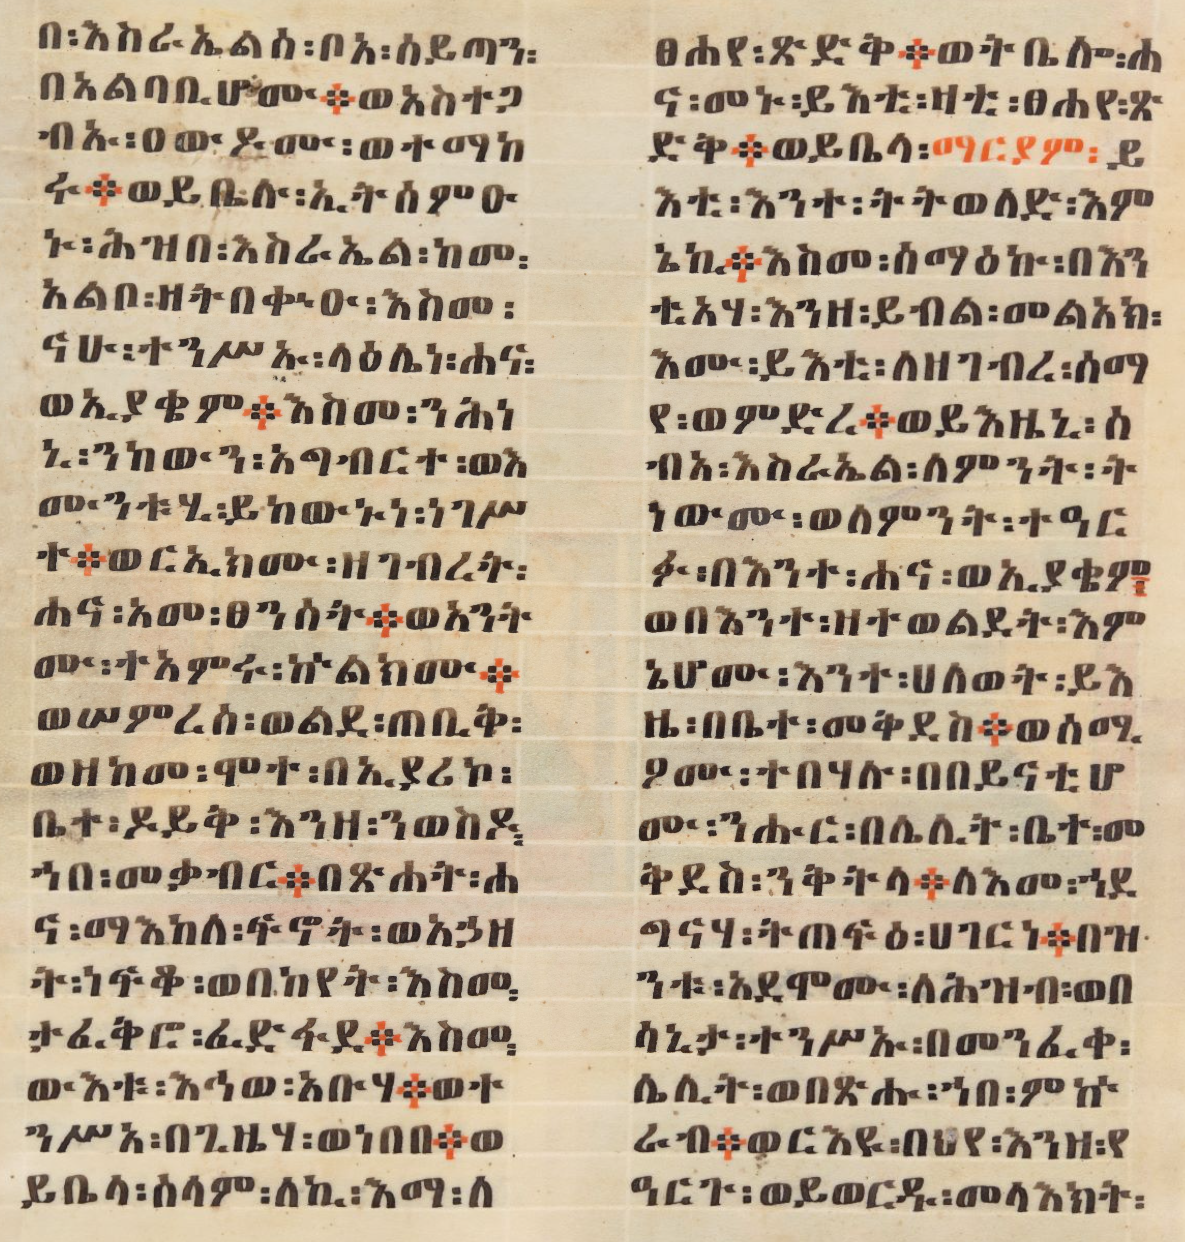 በ፡እስራኤልሰ፡ቦአ፡ሰይጣን፡
በአልባቢሆሙ፨ወአስተጋ
ብኡ፡ዐውዶሙ፡ወተማከ
ሩ፨ወይቤሉ፡ኢትሰምዑ
ኑ፡ሕዝበ፡እስራኤል፡ከመ፡
አልቦ፡ዘትበቍዑ፡እስመ፡
ናሁ፡ተንሥኡ፡ላዕሌነ፡ሐና፡
ወኢያቄም፨እስመ፡ንሕነ
ኒ፡ንከውን፡አግብርተ፡ወእ
ሙንቱሂ፡ይከውኑነ፡ነገሥ
ተ፨ወርኢክሙ፡ዘገብረት፡
ሐና፡አመ፡ፀንሰት፨ወአንት
ሙ፡ተአምሩ፡ኵልክሙ፨
ወሠምረሰ፡ወልደ፡ጠቢቅ፡
ወዘከመ፡ሞተ፡በኢያሪኮ፡
ቤተ፡ዶይቅ፡እንዘ፡ንወስዶ፡
ኀበ፡መቃብር፨በጽሐት፡ሐ
ና፡ማእከለ፡ፍኖት፡ወአኃዘ
ት፡ነፍቆ፡ወበከየት፡እስመ፡
ታፈቅሮ፡ፈድፋደ፨እስመ፡
ውእቱ፡እኅወ፡አቡሃ፨ወተ
ንሥአ፡በጊዜሃ፡ወነበበ፨ወ
ይቤላ፡ሰላም፡ለኪ፡እማ፡ለ
ፀሐየ፡ጽድቅ፨ወትቤሎ፡ሐ
ና፡መኑ፡ይእቲ፡ዛቲ፡ፀሐየ፡ጽ
ድቅ፨ወይቤላ፡ማርያም፡ይ
እቲ፡እንተ፡ትትወለድ፡እም
ኔኪ፨እስመ፡ሰማዕኩ፡በእን
ቲአሃ፡እንዘ፡ይብል፡መልአክ፡
እሙ፡ይእቲ፡ለዘገብረ፡ሰማ
የ፡ወምድረ፨ወይእዜኒ፡ሰ
ብአ፡እስራኤል፡ለምንት፡ት
ነውሙ፡ወለምንት፡ተዓር
ፉ፡በእንተ፡ሐና፡ወኢያቄም፤
ወበእንተ፡ዘተወልደት፡እም
ኔሆሙ፡እንተ፡ሀለወት፡ይእ
ዜ፡በቤተ፡መቅደስ፨ወሰሚ
ዖሙ፡ተበሃሉ፡በበይናቲሆ
ሙ፡ንሑር፡በሌሊት፡ቤተ፡መ
ቅደስ፡ንቅትላ፨ለእመ፡ኀደ
ግናሃ፡ትጠፍዕ፡ሀገርነ፨በዝ
ንቱ፡አደሞሙ፡ለሕዝብ፡ወበ
ሳኒታ፡ተንሥኡ፡በመንፈቀ፡
ሌሊት፡ወበጽሑ፡ኀበ፡ምኵ
ራብ፨ወርእዩ፡በህየ፡እንዘ፡የ
ዓርጉ፡ወይወርዱ፡መላእክት፡